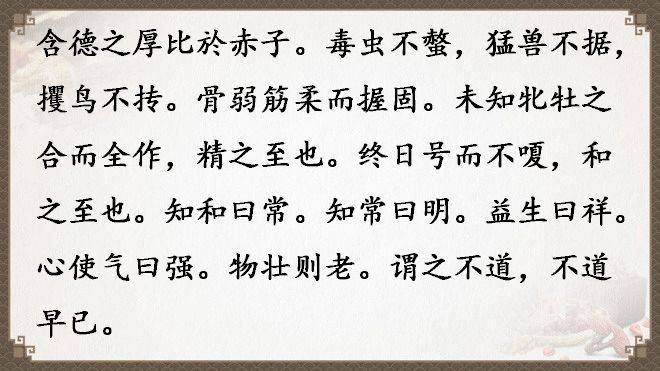 含德之厚比於赤子。毒虫不螫，猛兽不据，
攫鸟不抟。骨弱筋柔而握固。未知牝牡之
合而全作，精之至也。终日号而不嗄，和
之至也。知和曰常。知常曰明。益生曰祥。
心使气曰强。物壮则老。谓之不道，不道
早已。